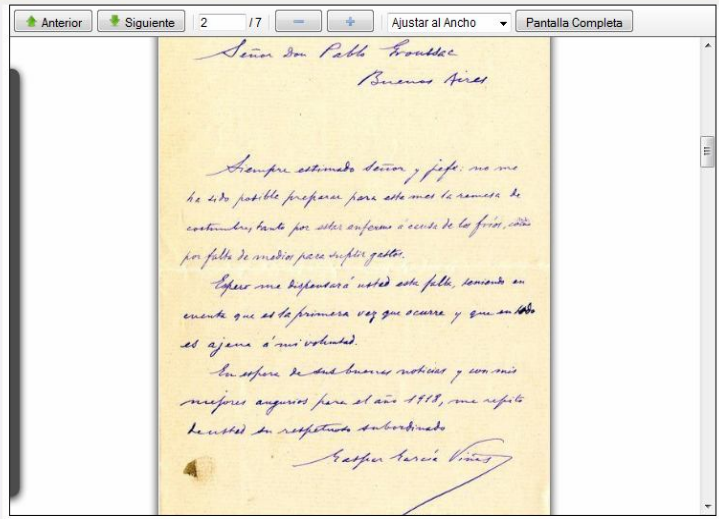 Anterior Siguiente 2 / 7 Ajustar al Ancho Pantalla Completa
Señor Don Pablo Groussac
Buenos Aires
Siempre estimado señor y jefe: no me
ha sido posible preparar para este mes la remesa de
costumbre, tanto por estar enfermo á causa de los fríos, como
por falta de medios para suplir gastos.
Espero me dispensará usted esta falta, teniendo en
cuenta que es la primera vez que ocurre y que en todo
es ajena á mi voluntad.
En espera de sus buenas noticias y con mis
mejores augurios para el año 1918, me repito
de usted su respetuoso subordinado
Gaspar García Viñas